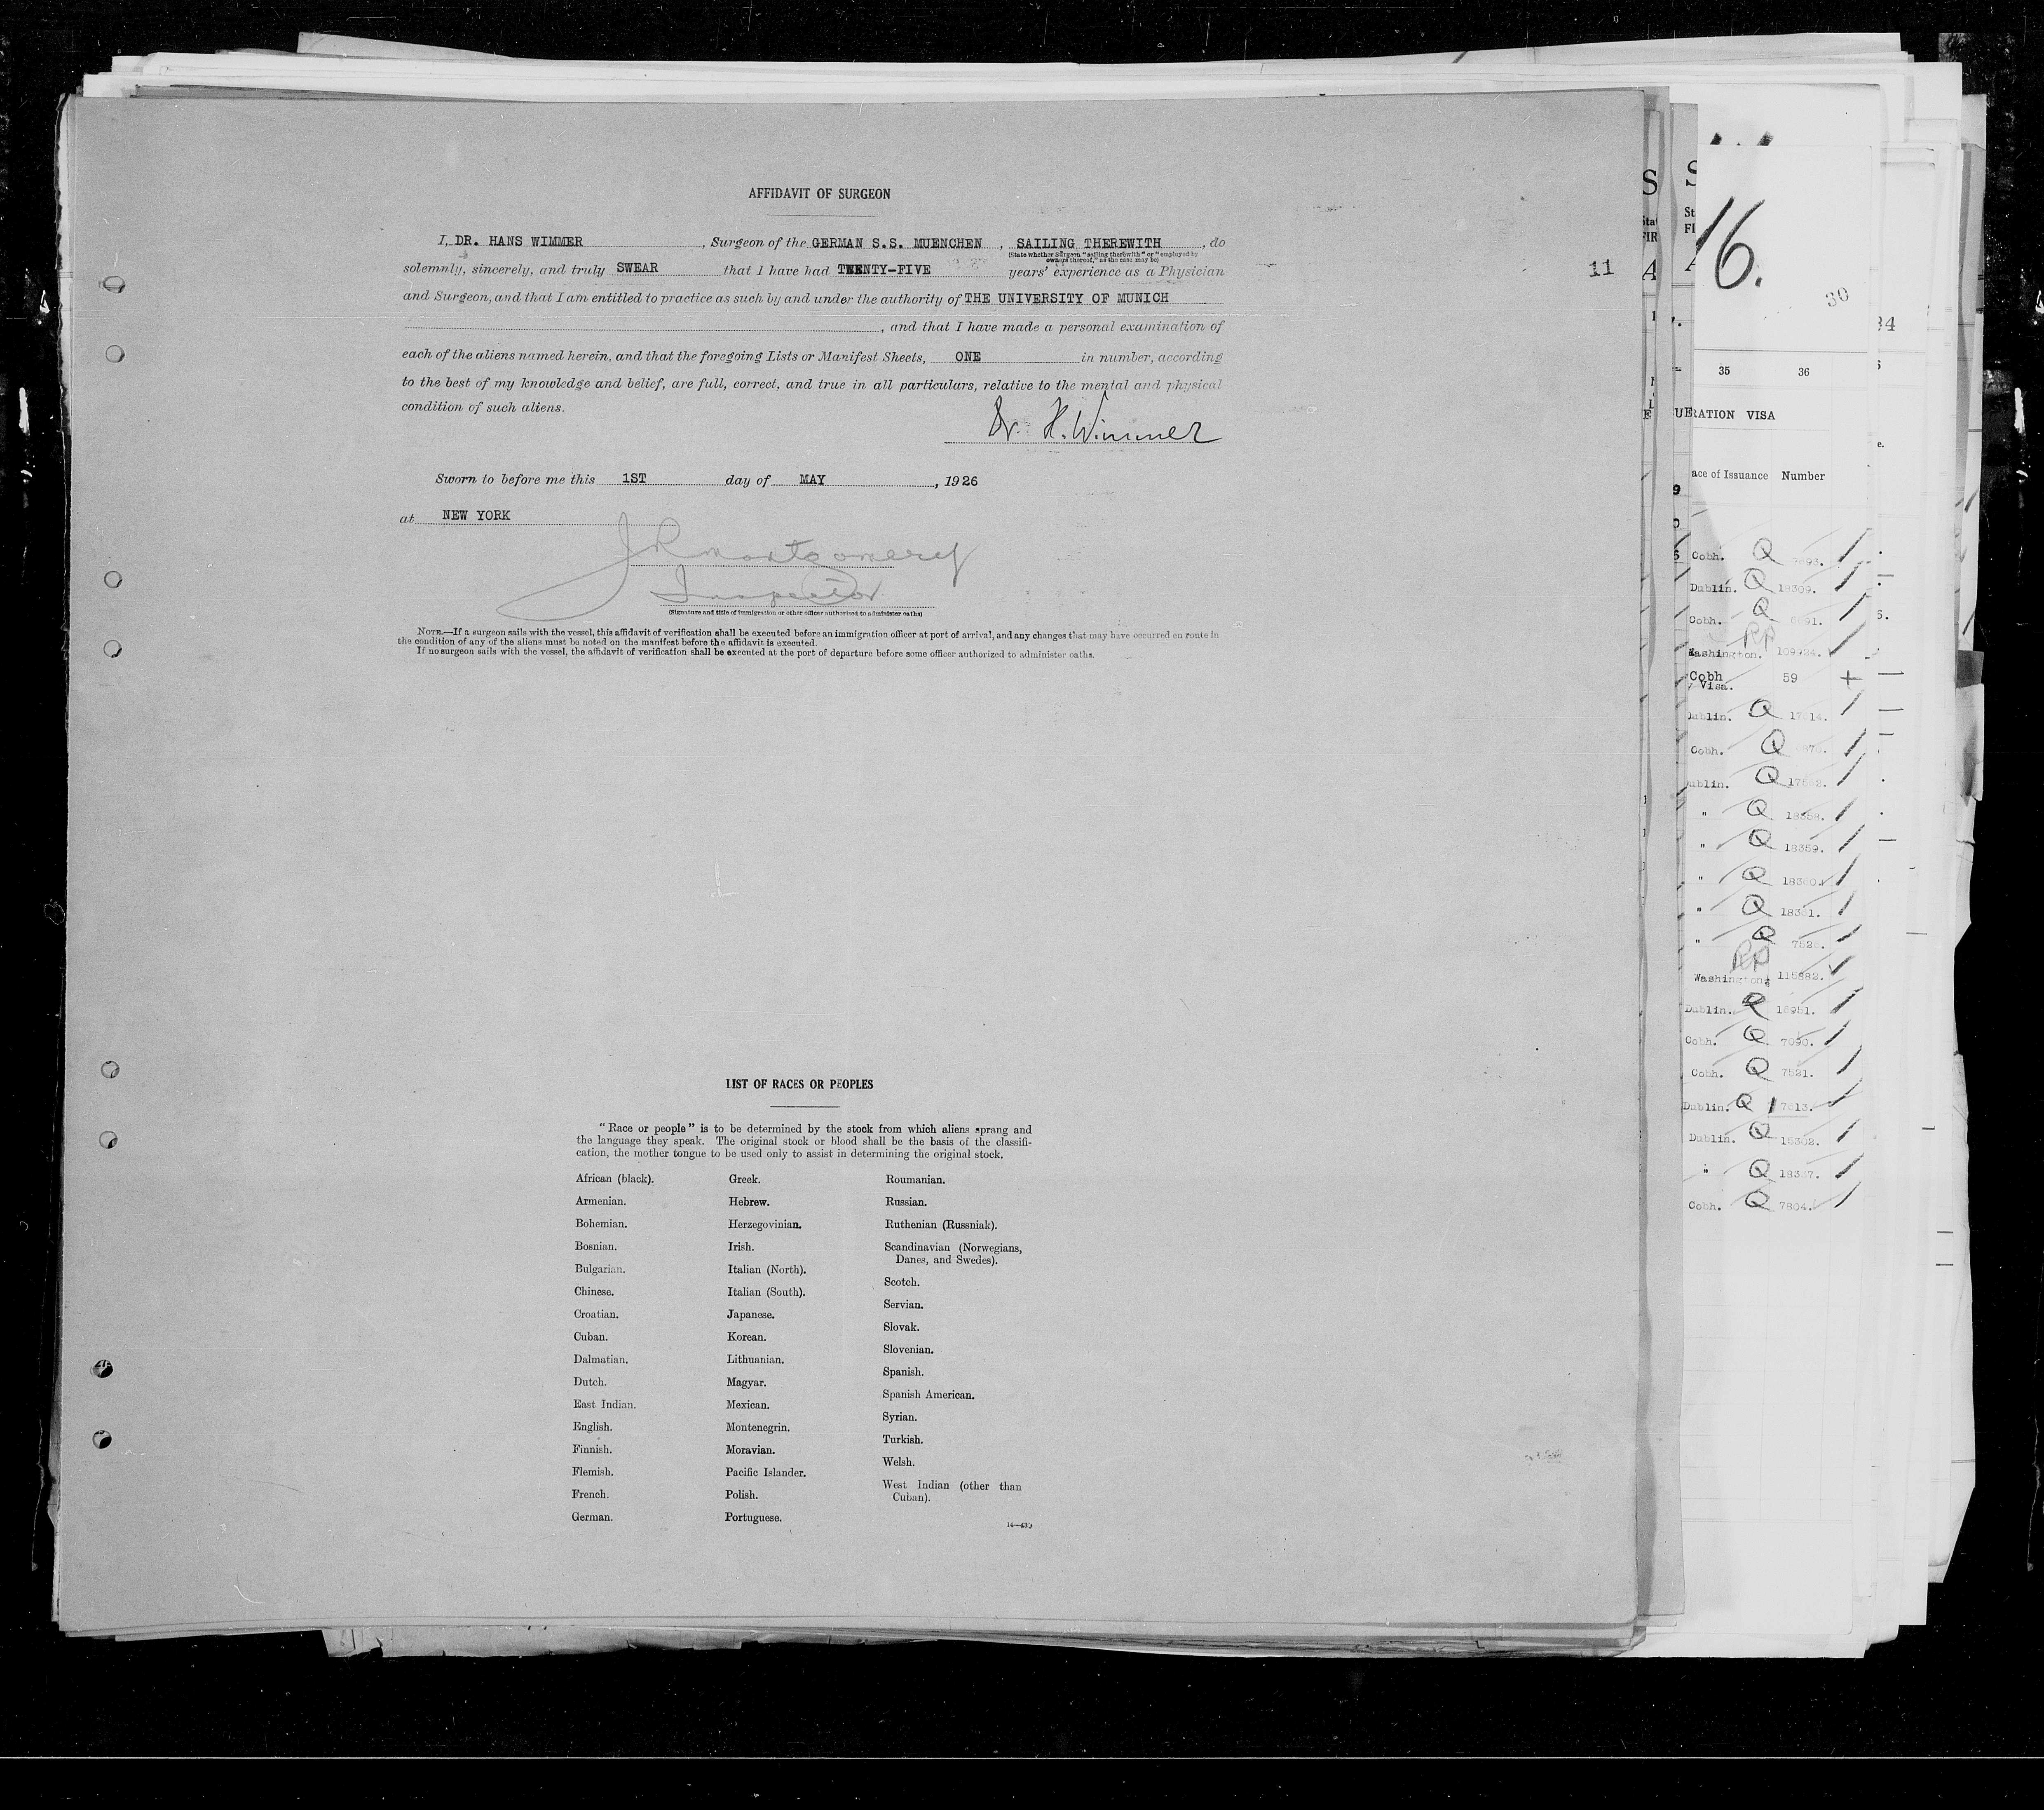 AFFIDAVIT OF SURGEON
I, DR. HANS WIMMER, Surgeon of the GERMAN S.S. MUENCHEN, SAILING THEREWITH, do
(State whether Surgeon "sailing therewith" or "employed by
owners thereof," as the case may be)
solemnly, sincerely, and truly SWEAR that I have had TWENTY-FIVE years' experience as a Physician
and Surgeon, and that I am entitled to practice as such by and under the authority of THE UNIVERSITY OF MUNICH
, and that I have made a personal examination of
each of the aliens named herein, and that the foregoing Lists or Manifest Sheets, ONE in number, according
to the best of my knowledge and belief, are full, correct, and true in all particulars, relative to the mental and physical
condition of such aliens.
Dr. H. Wimmer
Sworn to before me this 1ST day of MAY, 1926
at NEW YORK
J R Montgomery
Inspector
(Signature and title of immigration or other officer authorized to administer oaths)
NOTE.—If a surgeon sails with the vessel, this affidavit of verification shall be executed before an immigration officer at port of arrival, and any changes that may have occurred en route in
the condition of any of the aliens must be noted on the manifest before the affidavit is executed.
If no surgeon sails with the vessel, the affidavit of verification shall be executed at the port of departure before some officer authorized to administer oaths.
11
LIST OF RACES OR PEOPLES
"Race or people" is to be determined by the stock from which aliens sprang and
the language they speak. The original stock or blood shall be the basis of the classifi-
cation, the mother tongue to be used only to assist in determining the original stock.
African (black).
Armenian.
Bohemian.
Bosnian.
Bulgarian.
Chinese.
Croatian.
Cuban.
Dalmatian.
Dutch.
East Indian.
English.
Finnish.
Flemish.
French.
German.
Greek.
Hebrew.
Herzegovinian.
Irish.
Italian (North).
Italian (South).
Japanese.
Korean.
Lithuanian.
Magyar.
Mexican.
Montenegrin.
Moravian.
Pacific Islander.
Polish.
Portuguese.
Roumanian.
Russian.
Ruthenian (Russniak).
Scandinavian (Norwegians,
Danes, and Swedes).
Scotch.
Servian.
Slovak.
Slovenian.
Spanish.
Spanish American.
Syrian.
Turkish.
Welsh.
West Indian (other than
Cuban).
16.
30
35 36
RATION VISA
ace of Issuance Number
Cobh. Q
Dublin. Q 18309.
Cobh. Q
RP
Washington. 109924.
Cobh 59 +
Visa.
Q
Cobh. Q
Q
" Q 18358.
" Q 18359.
" Q 18360.
" Q 18361.
" Q
RP
Washington 115882.
Dublin. Q 16951.
Cobh. Q 7090.
Cobh. Q 7521.
Dublin. Q 17613.
Dublin. Q 15302.
" Q
Cobh. Q 7804.